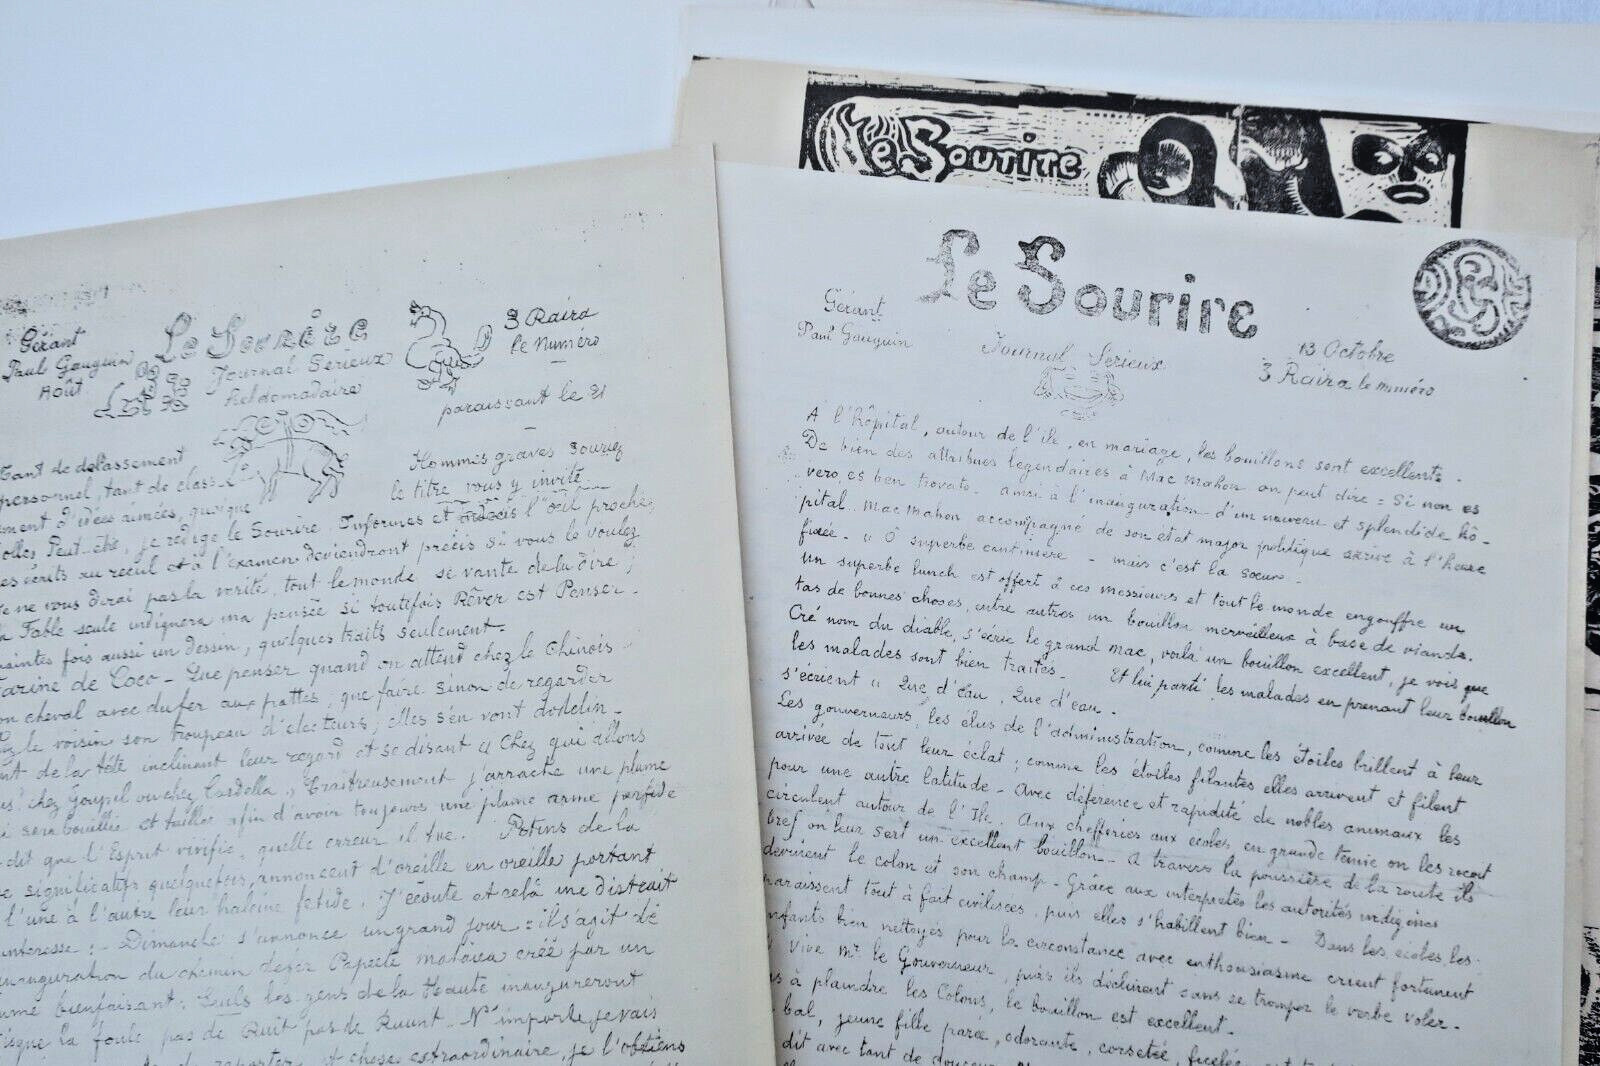 Le Sourire
Gérant
Paul Gauguin
Août
Le Sourire
Journal Sérieux
hebdomadaire
3 Raira
le Numéro
paraissant le 21
Tant de delassement
personnel, tant de class-
ment d'idées aimées, quoique
folles Peut-être, je redige le Sourire
Hommes graves souriez
le titre vous y invite
Informes et l'œil proche,
es écrits au recul et à l'examen deviendront précis si vous le voulez
Je ne vous dirai pas la vérité, tout le monde se vante de la dire;
la Fable seule indignera ma pensée si toutefois Rêver est Penser.
maintes fois aussi un dessin, quelques traits seulement.
Farine de Coco - Que penser quand on attend chez le Chinois
on cheval avec du fer aux pattes, que faire sinon de regarder
chez le voisin son troupeau d'électeurs, elles s'en vont dodelin-
ant de la tête inclinant leur regard et se disant « Chez qui allons
nous? chez Goupil ou chez Cardella » Traitreusement j'arrache une plume
sera bouillie et tailler afin d'avoir toujours une plume arme perfide
dit que l'Esprit vivifie, quelle erreur il tue. Potins de la
significatifs quelquefois, annoncent d'oreille en oreille portant
l'une à l'autre leur haleine fetide. J'écoute et cela me distrait
interesse: - Dimanche s'annonce un grand jour = il s'agit de
inauguration du chemin de fer Papeete mataiea créé par un
bienfaisant: Seuls les gens de la Haute inaugureront
la foule pas de Ruit pas de Ruunt. N'importe je vais
reporter et chose extraordinaire, je l'obtiens
Le Sourire
Gérant
Paul Gauguin
Journal Sérieux
13 Octobre
3 Raira le numéro
A l'hôpital, autour de l'ile, en mariage, les bouillons sont excellents.
De bien des attribues legendaires à Mac Mahon on peut dire = Si non es
vero, es ben trovato. ainsi à l'inauguration d'un nouveau et splendide hô-
pital. Mac Mahon accompagné de son état major politique arrive à l'heure
fixée. « Ô superbe cantinière - mais c'est la sœur -
un superbe lunch est offert à ces messieurs et tout le monde engouffre un
tas de bonnes choses, entre autres un bouillon merveilleux à base de viande.
Cré nom du diable, s'écrie le grand Mac, voilà un bouillon excellent, je vois que
les malades sont bien traités. Et lui parti les malades en prenant leur bouillon
s'écrient « Que d'eau, Que d'eau.
Les gouverneurs, les élus de l'administration, comme les étoiles brillent à leur
arrivée de tout leur éclat; comme les étoiles filantes elles arrivent et filent
pour une autre latitude - Avec déférence et rapidité de nobles animaux les
circulent autour de l'Ile. Aux chefferies aux ecoles, en grande tenue on les reçoit
bref on leur sert un excellent bouillon - A travers la poussière de la route ils
devinent le colon et son champ - Grâce aux interprètes les autorités indigènes
paraissent tout à fait civilisées, puis elles s'habillent bien - Dans les écoles, les
enfants bien nettoyés pour la circonstance avec enthousiasme crient fortement
Vive Mr le Gouverneur, puis ils déclinent sans se tromper le verbe voler.
à plaindre les Colons, le bouillon est excellent.
bal, jeune fille parée, odorante, corsetée, ficelée
dit avec tant de